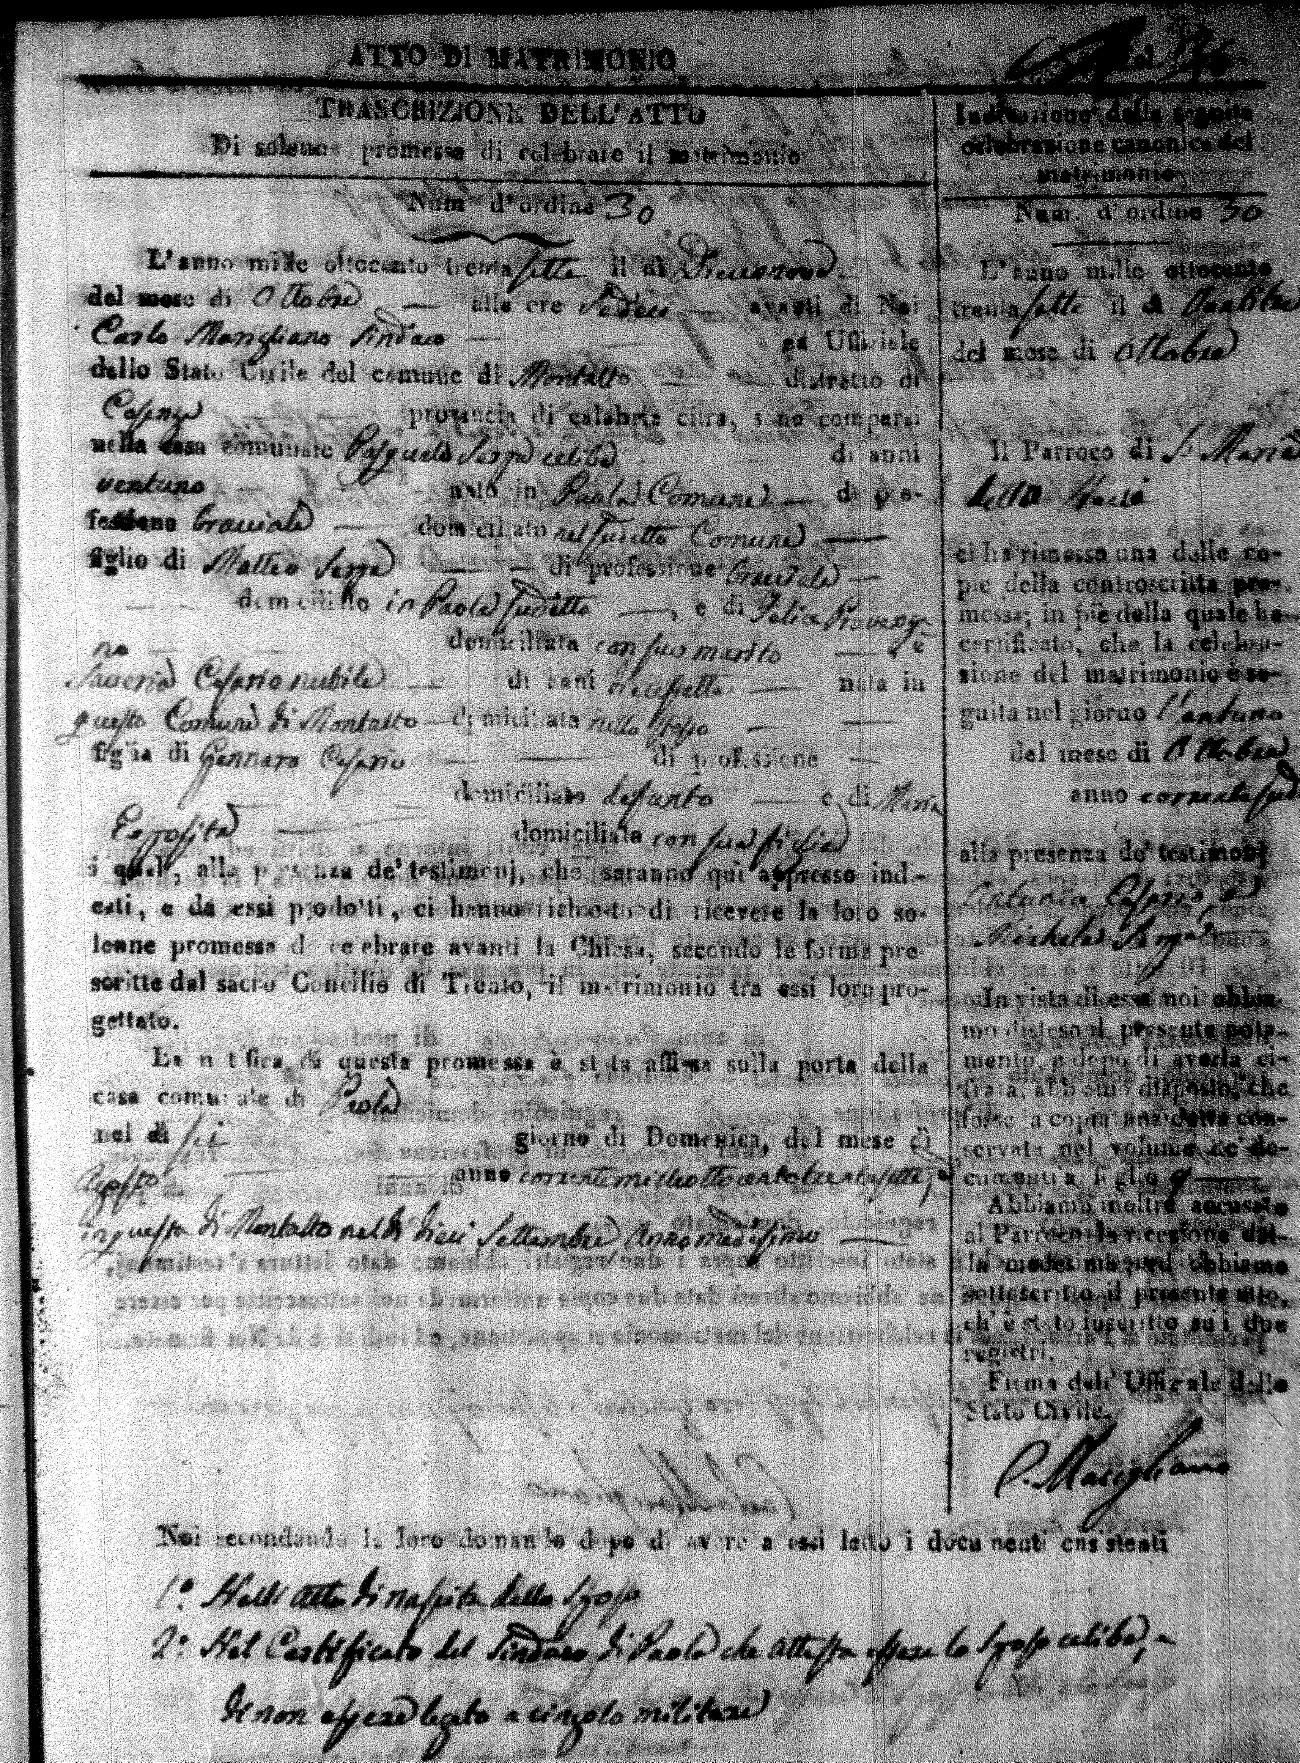 ATTO DI MATRIMONIO
TRASCRIZIONE DELL'ATTO
Di solenne promessa di celebrare il matrimonio
Num d'ordine 30
L'anno mille ottocento trentasette il di Diecinove
del mese di Ottobre alle ore Sedeci avanti di Noi
Carlo Marigliano Sindaco ed Uffiziale
dello Stato Civile del comune di Montalto distretto di
Cosenza provincia di calabria citra, sono comparsi
nella casa comunale Pasquale Serpa celibe di anni
ventuno nato in Paola Comune di pro-
fessione bracciale domiciliato nel suddetto Comune
figlio di Matteo Serpa di professione bracciale
domiciliato in Paola suddetto, e di Felia Provenza
no domiciliata con suo marito e
Saveria Cesario nubile di anni diecissette nata in
questo Comune di Montalto domiciliata nello stesso
figlia di Gennaro Cesario di professione
domiciliato defunto e di Maria
Esposita domiciliata con sua figlia
i quali, alla presenza de' testimonj, che saranno qui appresso indi-
cati, e da essi prodotti, ci hanno richiesto di ricevere la loro so-
lenne promessa di celebrare avanti la Chiesa, secondo le forme pre-
scritte dal sacro Concilio di Trento, il matrimonio tra essi loro pro-
gettato.
La notifica di questa promessa è stata affissa sulla porta della
casa comunale di Paola
nel di sei giorno di Domenica, del mese di
Agosto anno corrente milleottocentotrentasette, e
in questa di Montalto nel di dieci Settembre Anno medesimo
Noi secondando la loro domanda dopo di avere a essi letto i documenti consistenti
1.° Nell'atto di nascita dello sposo
2.° Nel Certificato del Sindaco di Paola che attesta essere lo sposo celibe, e
di non essere legato a cingolo militare
Indicazione della seguita
celebrazione canonica del
matrimonio
Num. d'ordine 30
L'anno mille ottocento
trentasette il di Ventitre
del mese di Ottobre
Il Parroco di S. Maria
della
ci ha rimesso una delle co-
pie della controscritta pro-
messa; in piè della quale ha
certificato, che la celebra-
zione del matrimonio è se-
guita nel giorno Ventuno
del mese di Ottobre
anno corrente
alla presenza de' testimonj
Cesario, e
Michele
In vista di essa noi abbia-
mo disteso il presente nota-
mento, e dopo di averla ci-
frata, abbiamo disposto, che
fosse la copia anzidetta con-
servata nel volume de' do-
cumenti a foglio 9
Abbiamo inoltre accusato
al Parroco la ricezione del-
la medesima, ed abbiamo
sottoscritto il presente atto,
ch' è stato inscritto su i due
registri.
Firma dell' Uffiziale dello
Stato Civile.
C. Marigliano